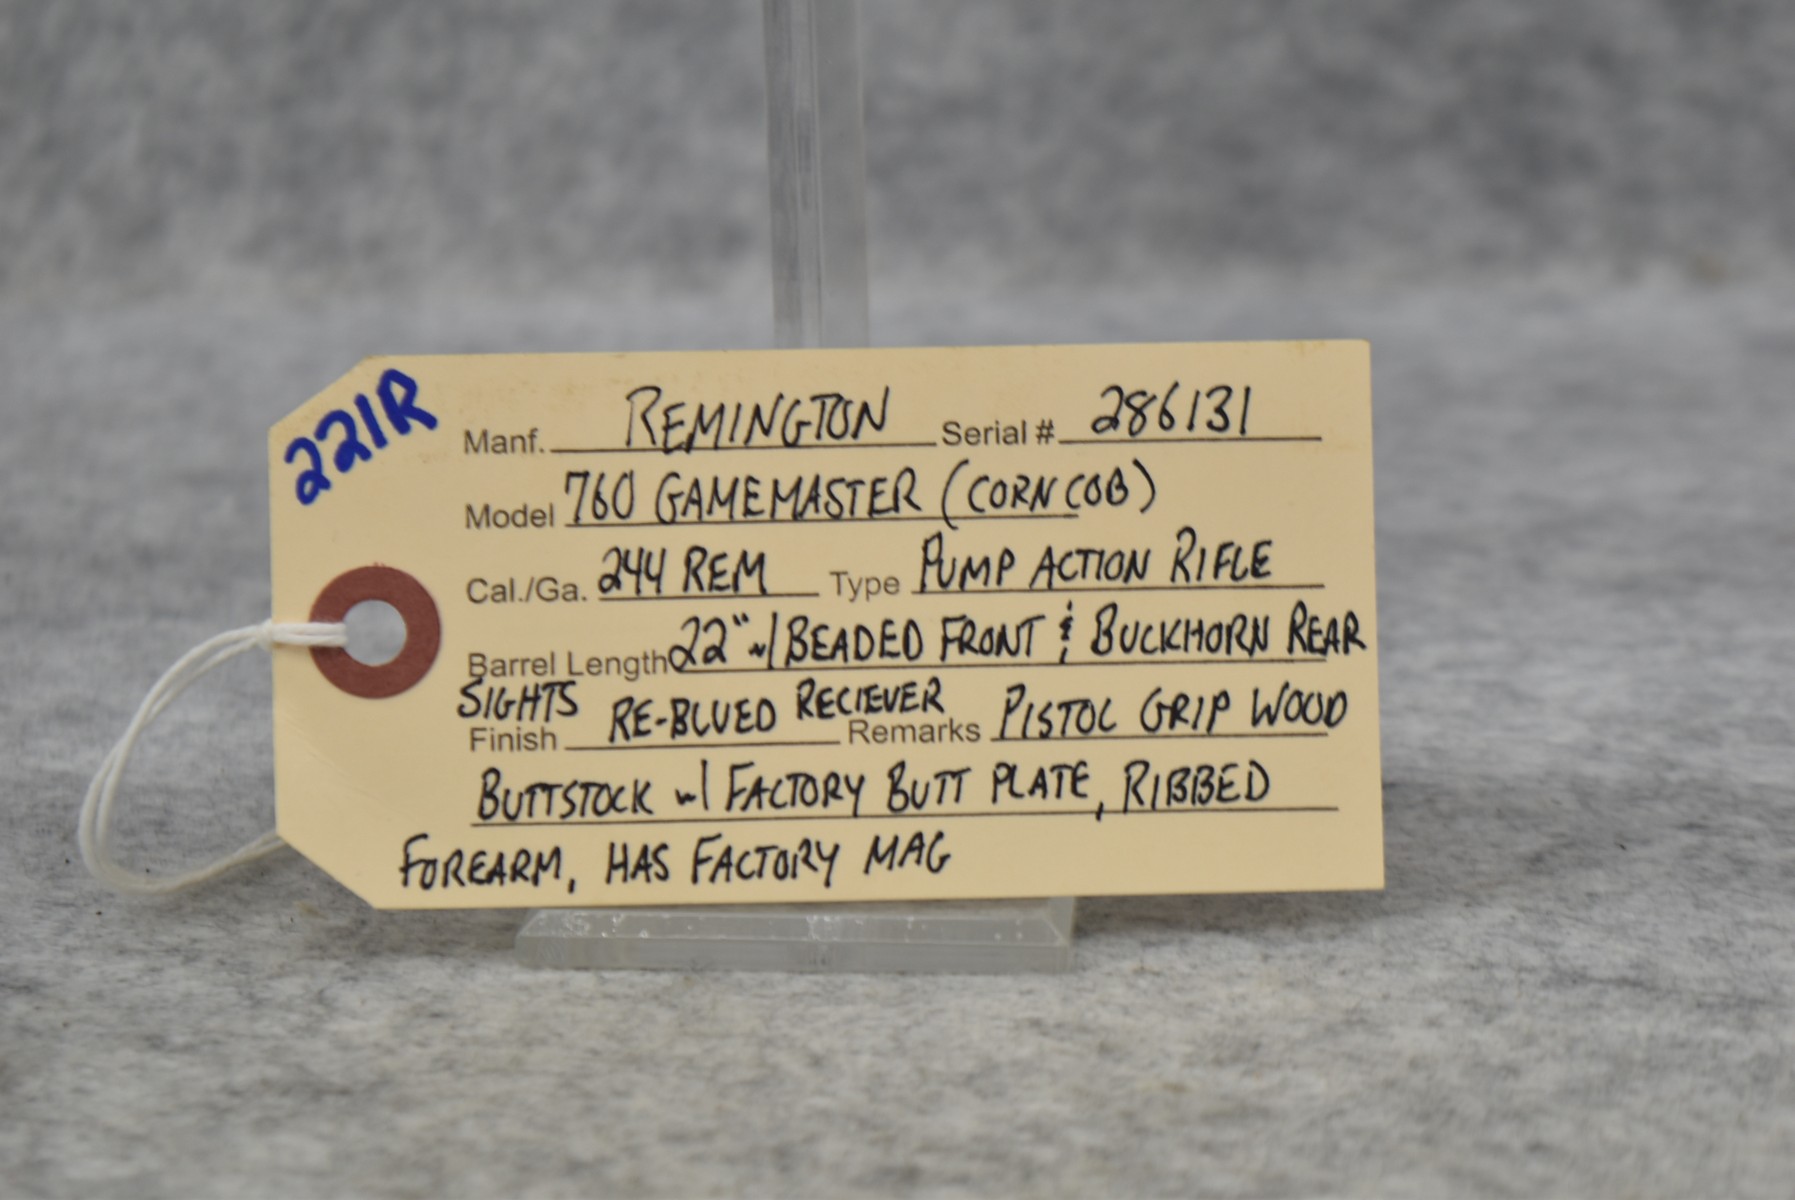 221R
Manf. REMINGTON Serial # 286131
Model 760 GAMEMASTER (CORN COB)
Cal./Ga. 244 REM Type PUMP ACTION RIFLE
Barrel Length 22" w/ BEADED FRONT & BUCKHORN REAR
SIGHTS
Finish RE-BLUED RECIEVER Remarks PISTOL GRIP WOOD
BUTTSTOCK w/ FACTORY BUTT PLATE, RIBBED
FOREARM, HAS FACTORY MAG